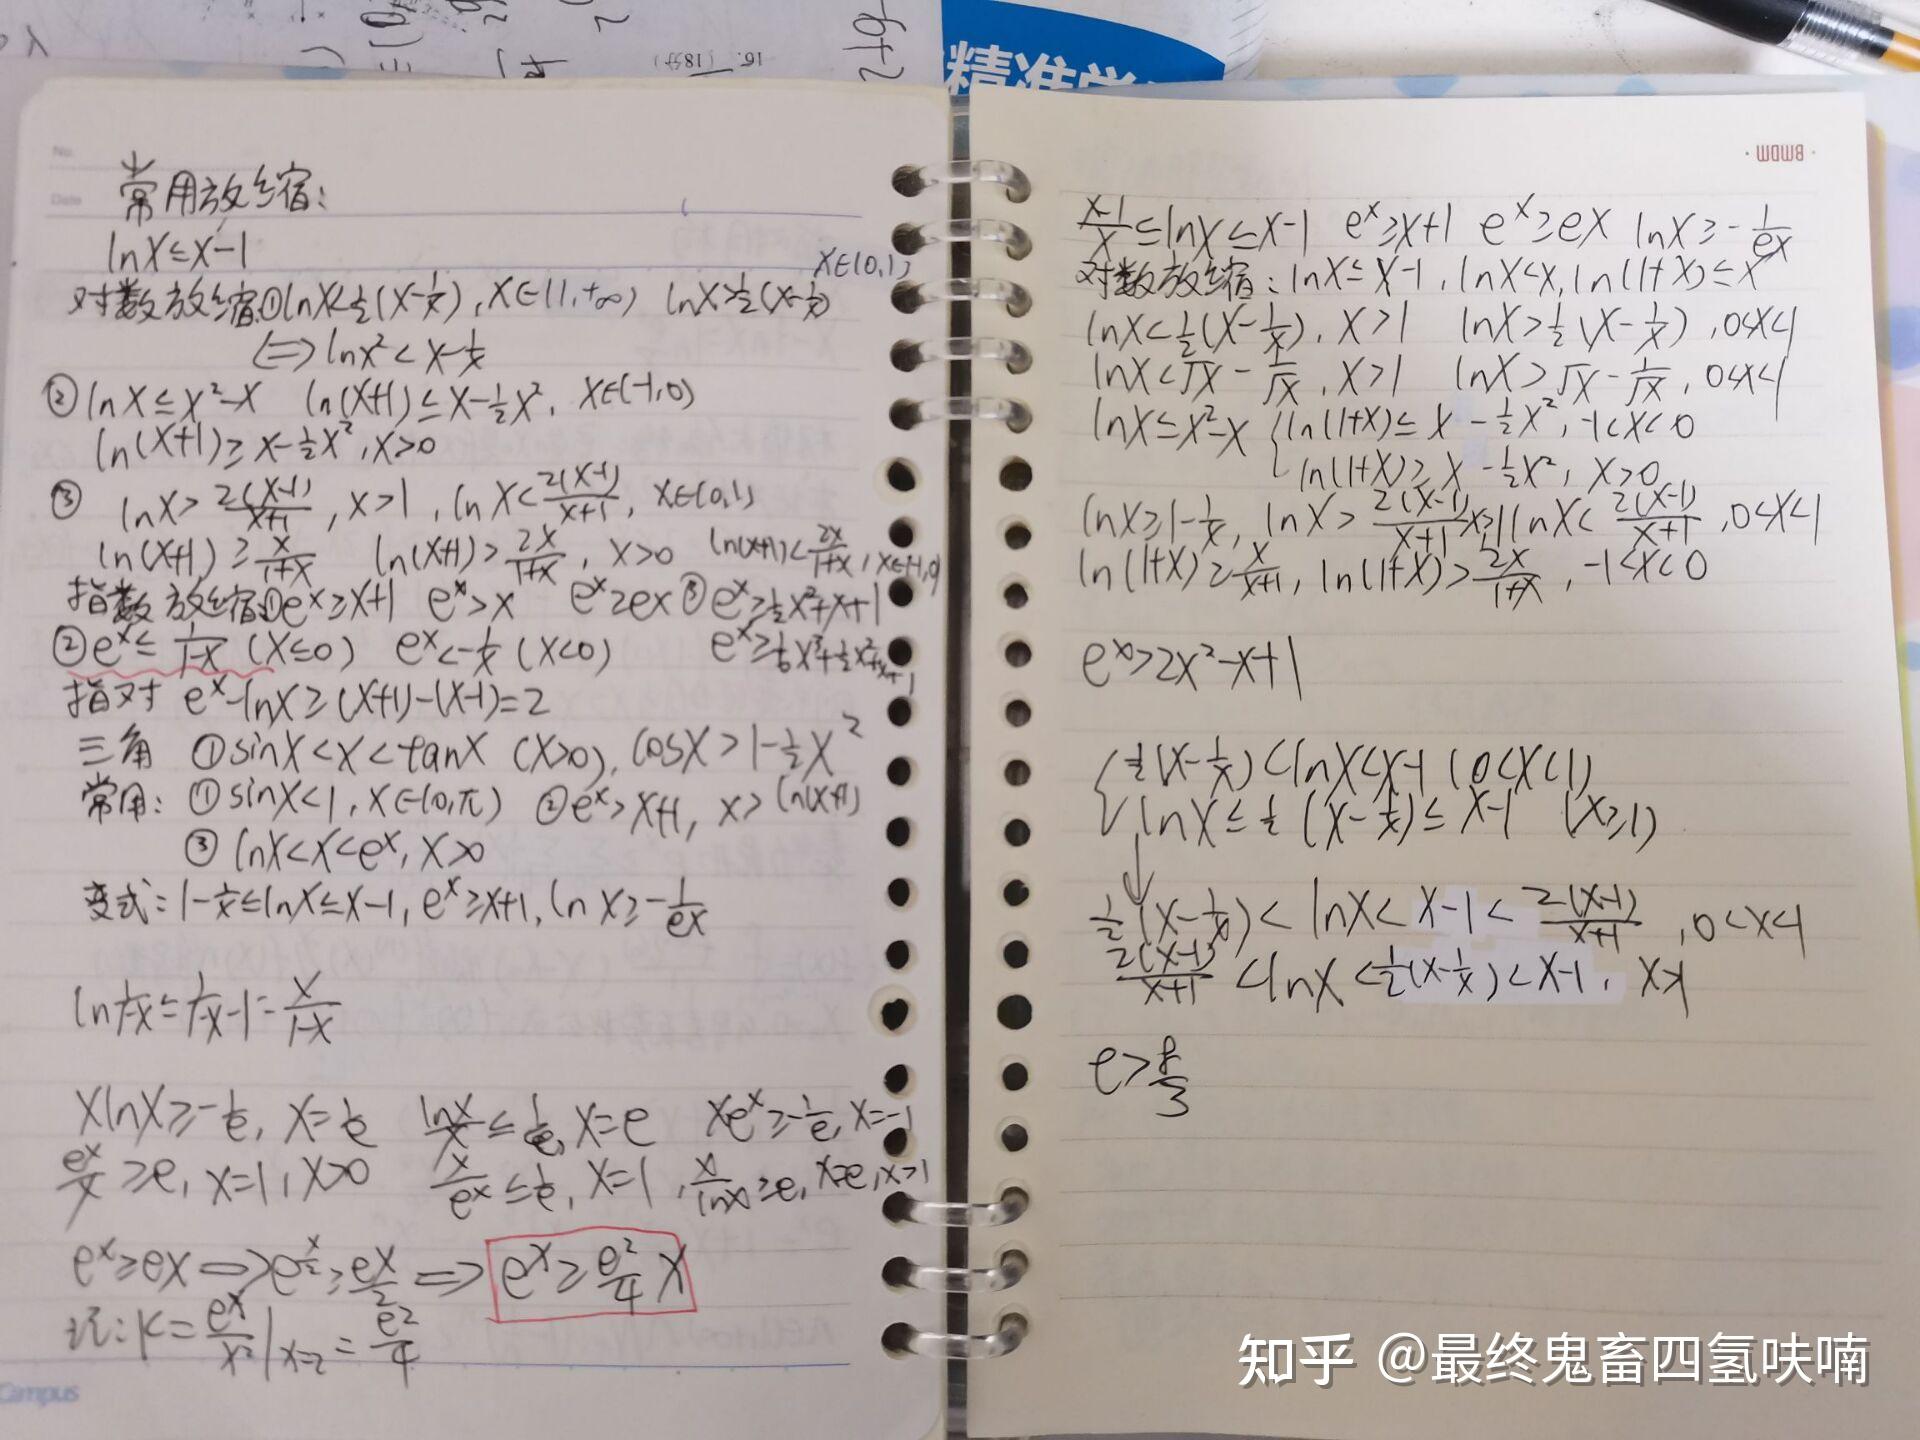 精准学
16. (18分)
-6+2
No.
Date
常用放缩:
lnx≤x-1
对数放缩①lnx<½(x-1/x), x∈(1,+∞) lnx>½(x-1/x) x∈(0,1)
⟺ lnx²<x-1/x
② lnx≤x²-x ln(x+1)≤x-½x², x∈(-1,0)
ln(x+1)≥x-½x², x>0
③ lnx>2(x-1)/(x+1), x>1, lnx<2(x-1)/(x+1), x∈(0,1)
ln(x+1)≥x/(1+x) ln(x+1)>2x/(1+x), x>0 ln(x+1)<2x/(1+x), x∈(-1,0)
指数放缩①e^x≥x+1 e^x>x e^x≥ex ③e^x≥½x²+x+1
②e^x≤1/(1-x) (x≤0) e^x<-1/x (x<0) e^x≥1/6x³+½x²+x+1
指对 e^x-lnx≥(x+1)-(x-1)=2
三角 ①sinx<x<tanx (x>0), cosx>1-½x²
常用: ①sinx<1, x∈(0,π) ②e^x>x+1, x>ln(x+1)
③ lnx<x<e^x, x>0
变式: 1-1/x≤lnx≤x-1, e^x≥x+1, lnx≥-1/(ex)
ln1/(1-x)≤1/(1-x)-1=x/(1-x)
xlnx≥-1/e, x=1/e lnx/x≤1/e, x=e xe^x≥-1/e, x=-1
e^x/x≥e, x=1, x>0 x/e^x≤1/e, x=1, x/lnx≥e, x=e, x>1
e^x≥ex ⟹ e^(x/2)≥ex/2 ⟹ e^x≥e²/4 x
记: k=e^x/x²|x=2=e²/4
Campus
BMDM
(x-1)/x≤lnx≤x-1 e^x≥x+1 e^x≥ex lnx≥-1/(ex)
对数放缩: lnx≤x-1, lnx<x, ln(1+x)≤x
lnx<½(x-1/x), x>1 lnx>½(x-1/x), 0<x<1
lnx<√x-1/√x, x>1 lnx>√x-1/√x, 0<x<1
lnx≤x²-x { ln(1+x)≤x-½x², -1<x<0
ln(1+x)≥x-½x², x>0
lnx≥1-1/x, lnx>2(x-1)/(x+1) x>1 lnx<2(x-1)/(x+1), 0<x<1
ln(1+x)≥x/(x+1), ln(1+x)>2x/(1+x), -1<x<0
e^x>2x²-x+1
{ ½(x-1/x)<lnx<x-1 (0<x<1)
lnx≤½(x-1/x)≤x-1 (x≥1)
½(x-1/x)<lnx<x-1<2(x-1)/(x+1), 0<x<1
2(x-1)/(x+1)<lnx<½(x-1/x)<x-1, x>1
e>8/3
知乎 @最终鬼畜四氢呋喃